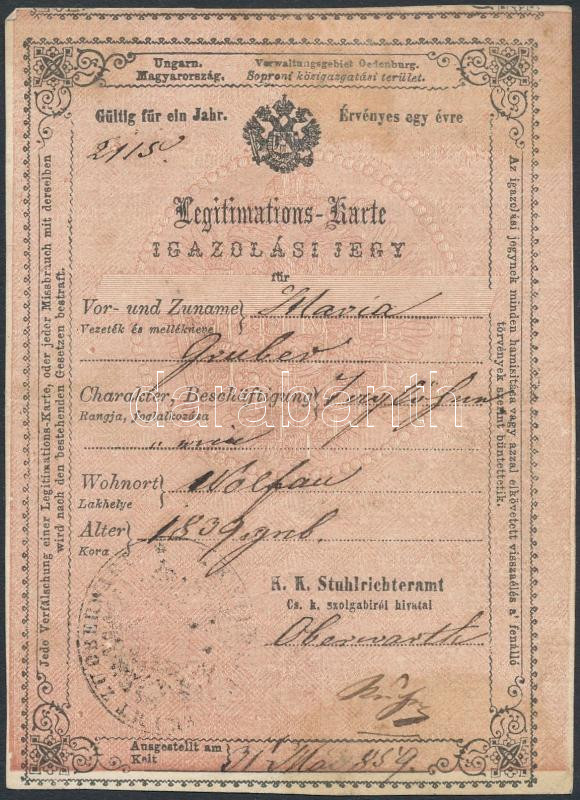 Ungarn. Verwaltungsgebiet Oedenburg.
Magyarország. Soproni közigazgatási terület.
Gültig für ein Jahr. Érvényes egy évre
Legitimations-Karte
IGAZOLÁSI JEGY
für
Vor- und Zuname} Maria
Vezeték és mellékneve
Gruber
Charakter, Beschäftigung}
Rangja, foglalkozása
Wohnort} Wolfau
Lakhelye
Alter} 1839 geb.
Kora
K. K. Stuhlrichteramt
Cs. k. szolgabirói hivatal
Oberwarth
Ausgestellt am
Kelt 31 Mai 859.
Jede Verfälschung einer Legitimations-Karte, oder jeder Missbrauch mit derselben
wird nach den bestehenden Gesetzen bestraft.
Az igazolási jegynek minden hamisitása vagy azzal elkövetett visszaélés a' fenálló
törvények szerint büntettetik.
darabanth